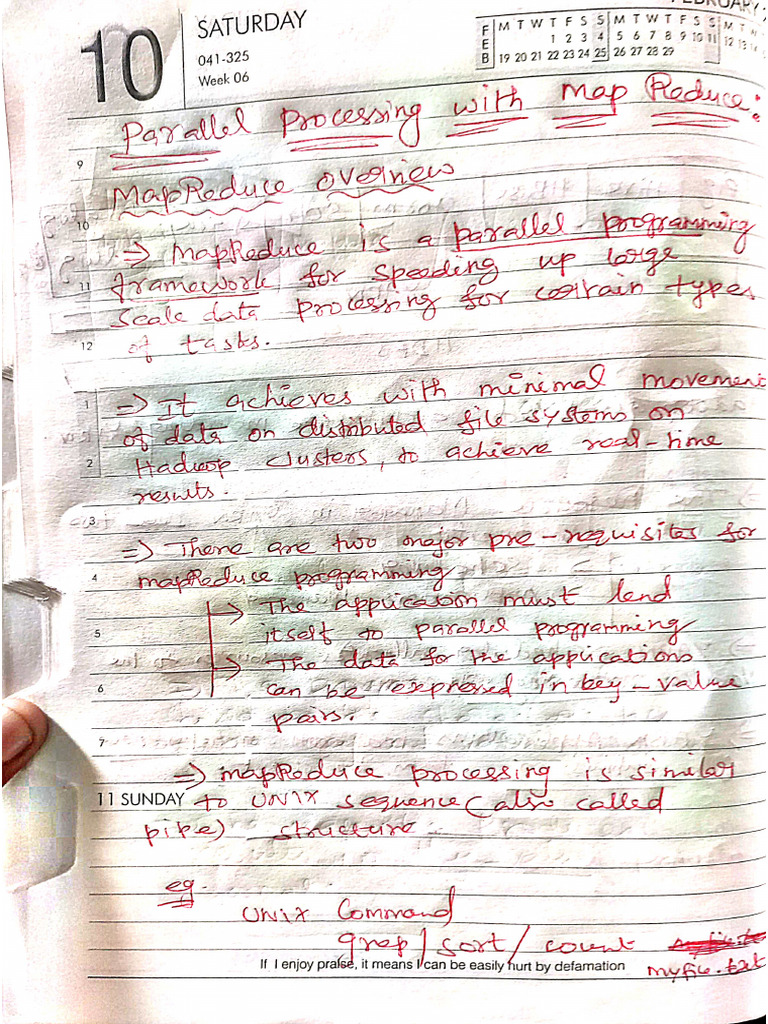 FEBRUARY
10 SATURDAY
041-325
Week 06
FEB
M T W T F S S M T W T F S S M T W
1 2 3 4 5 6 7 8 9 10 11 12 13 14
19 20 21 22 23 24 25 26 27 28 29
Parallel Processing with Map Reduce:
9
MapReduce overview
10
=> MapReduce is a parallel-programming
11 framework for speeding up large
scale data processing for certain types
12 of tasks.
1 => It achieves with minimal movement
of data on distributed file systems on
2 Hadoop clusters, to achieve real-time
results.
3
=> There are two major pre-requisites for
4 mapReduce programming
-> The application must lend
5 itself to parallel programming
-> The data for the applications
6 can be expressed in key-value
pairs.
7
=> mapReduce processing is similar
11 SUNDAY to UNIX sequence (also called
pipe) structure
eg.
UNIX Command
grep / sort / count myfile.txt
If I enjoy praise, it means I can be easily hurt by defamation